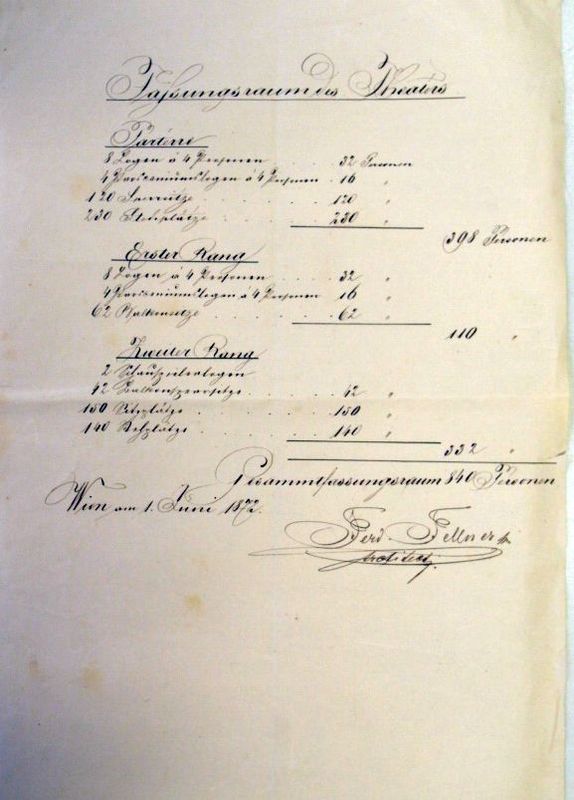 Fassungsraum des Theaters
Parterre
8 Logen á 4 Personen . . . . 32 Personen
4 Prosceniumslogen á 4 Personen . 16 "
120 Sperrsitze . . . . . 120 "
230 Stehplätze . . . . . 230 "
398 Personen
Erster Rang
8 Logen á 4 Personen . . . . 32 "
4 Prosceniumslogen á 4 Personen 16 "
62 Balkonsitze . . . . . 62 "
110 "
Zweiter Rang
2 Schauspielerlogen
42 Balkonsperrsitze . . . . 42 "
150 Sitzplätze . . . . . 150 "
140 Stehplätze . . . . . 140 "
332 "
Gesammtfassungsraum 840 Personen
Wien am 1. Juni 1872.
Ferd. Fellner
Architect